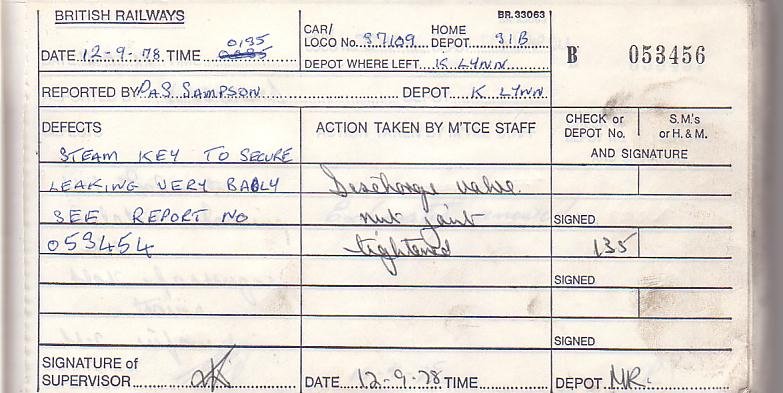 BRITISH RAILWAYS
BR.33063
DATE 12-9-78 TIME 0135
CAR/ LOCO No. 37109 HOME DEPOT 31B
B 053456
DEPOT WHERE LEFT K LYNN
REPORTED BY SAMPSON DEPOT K LYNN
DEFECTS
ACTION TAKEN BY M'TCE STAFF
CHECK or DEPOT No.
S.M.'s or H. & M.
AND SIGNATURE
STEAM KEY TO SECURE
LEAKING VERY BADLY
SEE REPORT NO
053454
Discharge valve
nut joint
tightened
135
SIGNED
SIGNED
SIGNED
SIGNATURE of SUPERVISOR
DATE 12-9-78 TIME
DEPOT MR.